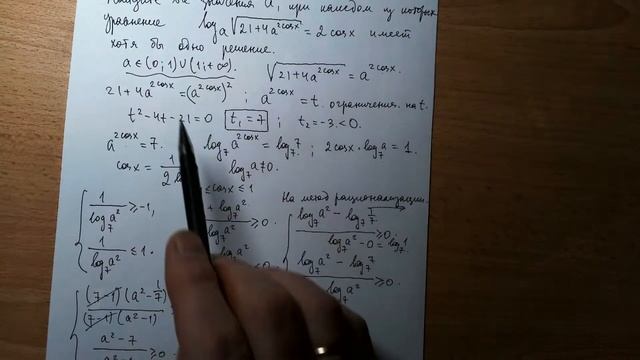 Найдите все значения a, при каждом из которых
уравнение log_a √(21+4a^{2cosx}) = 2cosx имеет
хотя бы одно решение.
a∈(0;1)∪(1;+∞). √(21+4a^{2cosx}) = a^{2cosx}.
21+4a^{2cosx} = (a^{2cosx})² ; a^{2cosx} = t. ограничения на t.
t²-4t-21=0 t₁=7 ; t₂=-3<0.
a^{2cosx} = 7. log₇ a^{2cosx} = log₇ 7 ; 2cosx·log₇a = 1.
cosx = 1/2 log₇a≠0.
≤cosx≤1 На метод рационализации
{ 1/log₇a² ≥ -1, + log₇a² ≥0. log₇a² - log₇ 1/7 / log₇a² - 0 = log₇1 ≥0
1/log₇a² ≤ 1. log₇a² - log₇7 / log₇a² ≥0.
{ (7-1)(a²-1/7) / (7-1)(a²-1)
a²-7 ≥0